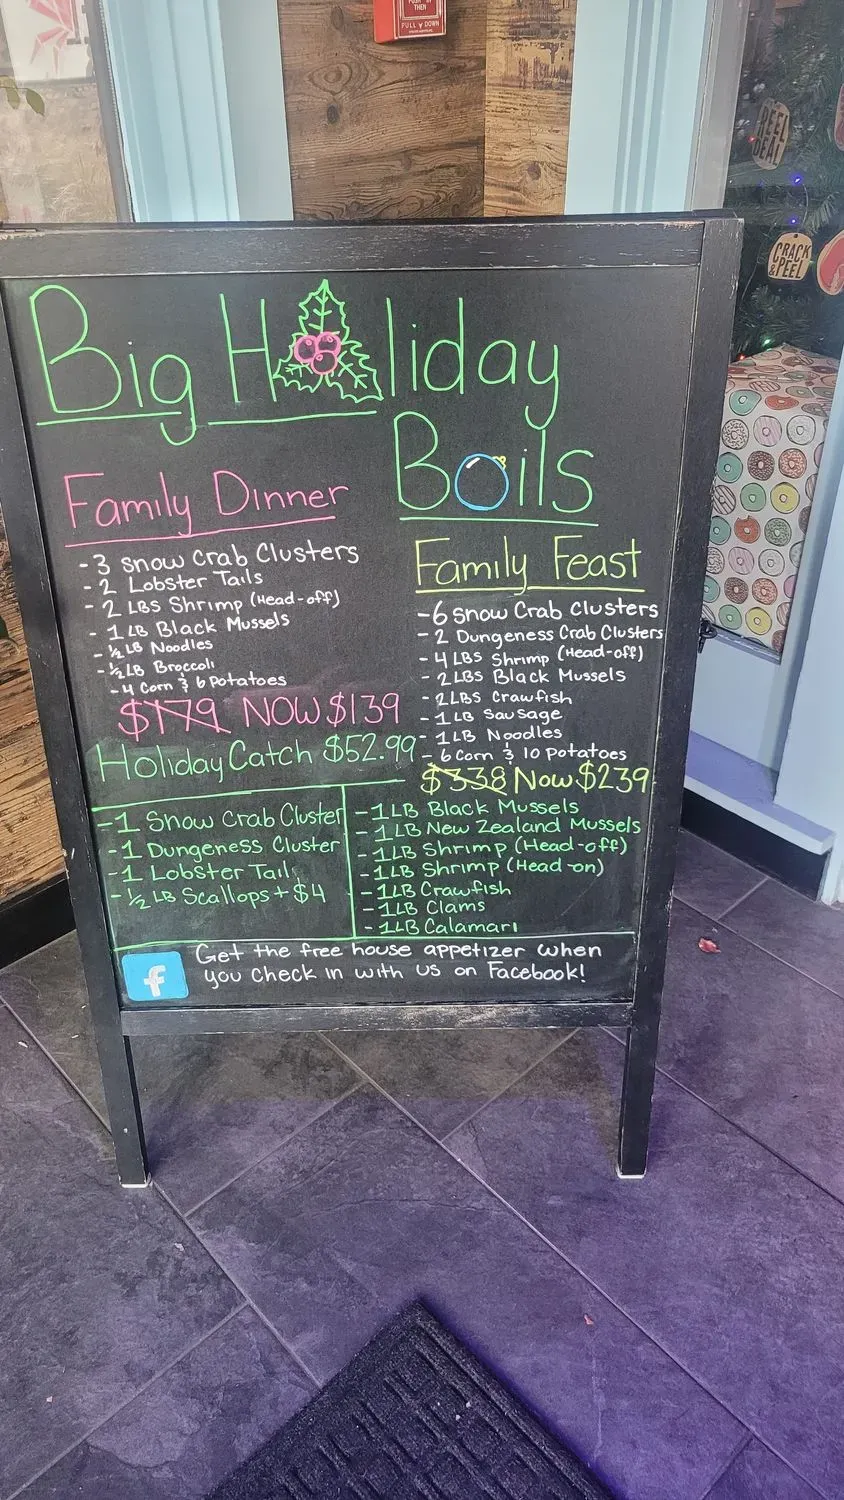 PUSH IN
THEN
PULL DOWN
REEL
DEAL
CRACK
& PEEL
Big Holiday
Boils
Family Dinner
- 3 Snow Crab Clusters
- 2 Lobster Tails
- 2 LBS Shrimp (Head-off)
- 1 LB Black Mussels
- ½ LB Noodles
- ½ LB Broccoli
- 4 Corn & 6 Potatoes
$179 NOW $139
Family Feast
- 6 Snow Crab Clusters
- 2 Dungeness Crab Clusters
- 4 LBS Shrimp (Head-off)
- 2 LBS Black Mussels
- 2 LBS Crawfish
- 1 LB Sausage
- 1 LB Noodles
- 6 Corn & 10 Potatoes
$338 Now $239
Holiday Catch $52.99
- 1 Snow Crab Cluster
- 1 Dungeness Cluster
- 1 Lobster Tail
- ½ LB Scallops + $4
- 1 LB Black Mussels
- 1 LB New Zealand Mussels
- 1 LB Shrimp (Head-off)
- 1 LB Shrimp (Head-on)
- 1 LB Crawfish
- 1 LB Clams
- 1 LB Calamari
f
Get the free house appetizer when
you check in with us on Facebook!